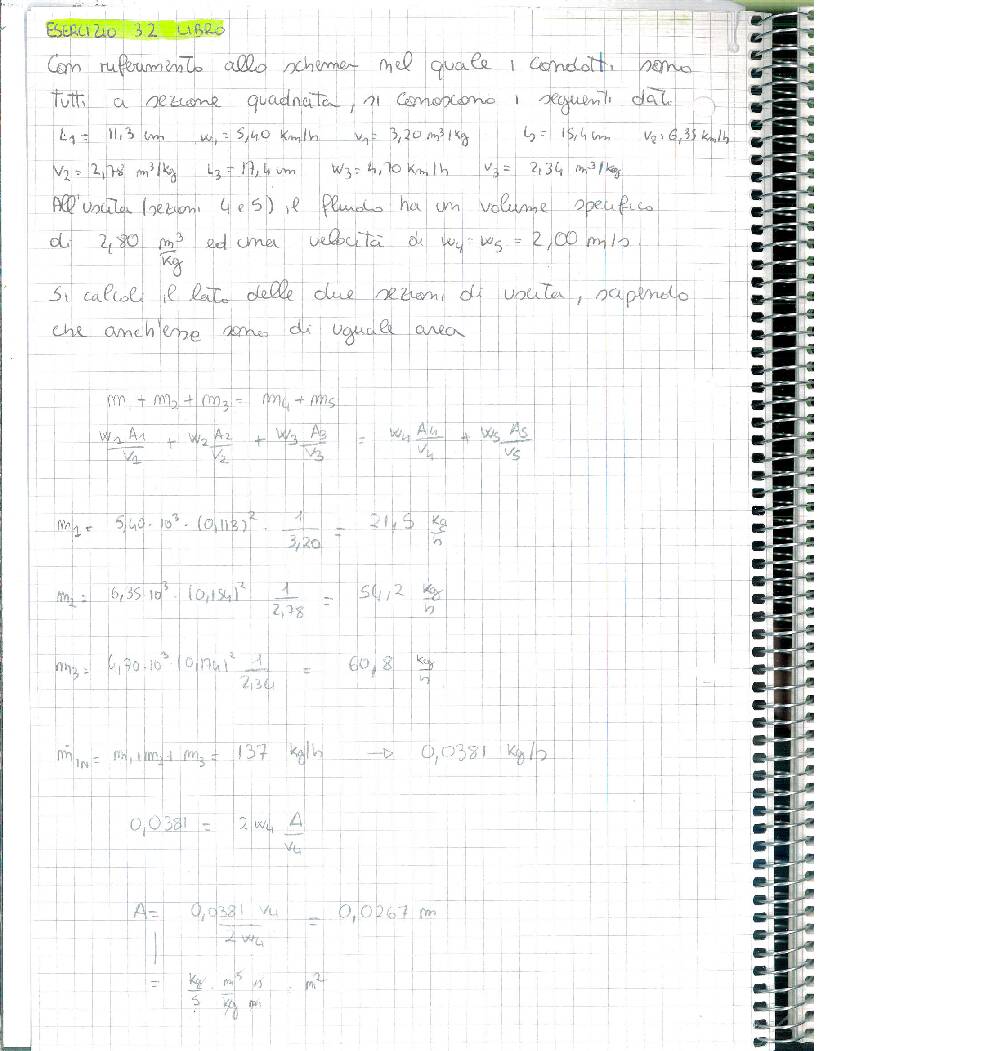 ESERCIZIO 3.2 LIBRO
Con riferimento allo schema nel quale i condotti sono
tutti a sezione quadrata, si conoscono i seguenti dati
L1 = 11,3 cm w1 = 5,40 Km/h v1 = 3,20 m³/kg L2 = 15,4 cm V2 = 6,35 km/h
V2 = 2,78 m³/kg L3 = 17,4 cm W3 = 4,70 Km/h V3 = 2,34 m³/kg
All'uscita (sezioni 4 e 5) il fluido ha un volume specifico
di 2,80 m³/kg ed una velocità di w4 = w5 = 2,00 m/s.
Si calcoli il lato delle due sezioni di uscita, sapendo
che anch'esse sono di uguale area
m + m2 + m3 = m4 + m5
W1 A1/V1 + W2 A2/V2 + W3 A3/V3 = W4 A4/V4 + W5 A5/V5
m1 = 5,40·10³ · (0,113)² · 1/3,20 = 21,5 kg/h
m2 = 6,35·10³ · (0,154)² 1/2,78 = 54,2 kg/h
m3 = 4,70·10³ · (0,174)² 1/2,34 = 60,8 kg/h
ṁIN = m1 + m2 + m3 = 137 kg/h → 0,0381 kg/s
0,0381 = 2 w4 A/V4
A = 0,0381 V4 / 2 W4 = 0,0267 m
= kg/s · m³/kg s/m · m²